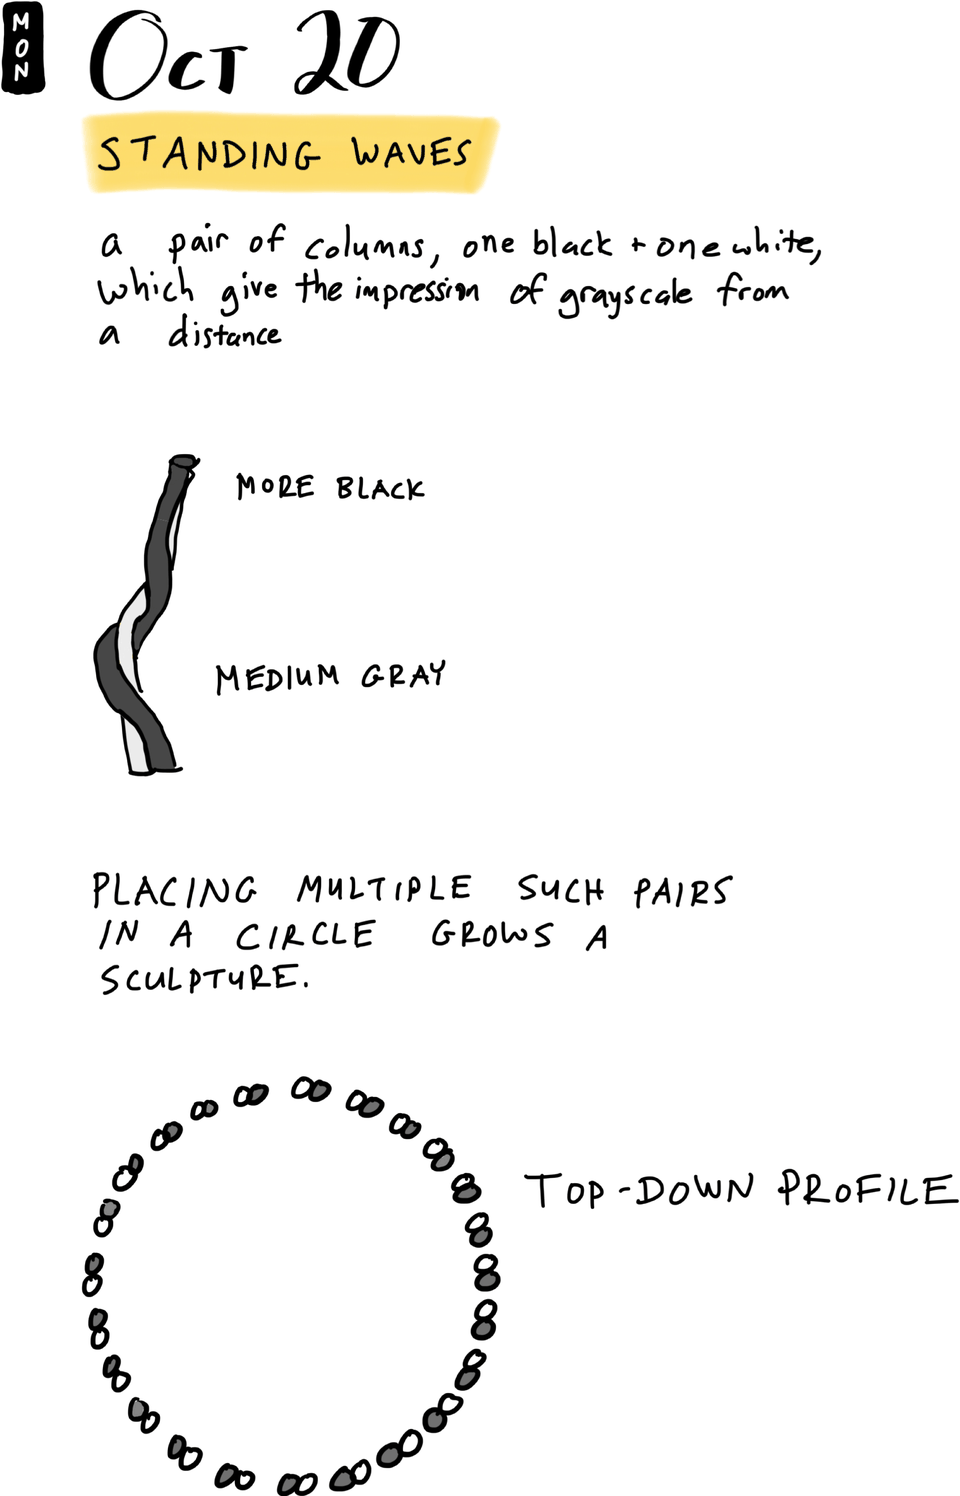 MON
OCT 20
STANDING WAVES
a pair of columns, one black + one white,
which give the impression of grayscale from
a distance
MORE BLACK
MEDIUM GRAY
PLACING MULTIPLE SUCH PAIRS
IN A CIRCLE GROWS A
SCULPTURE.
TOP-DOWN PROFILE